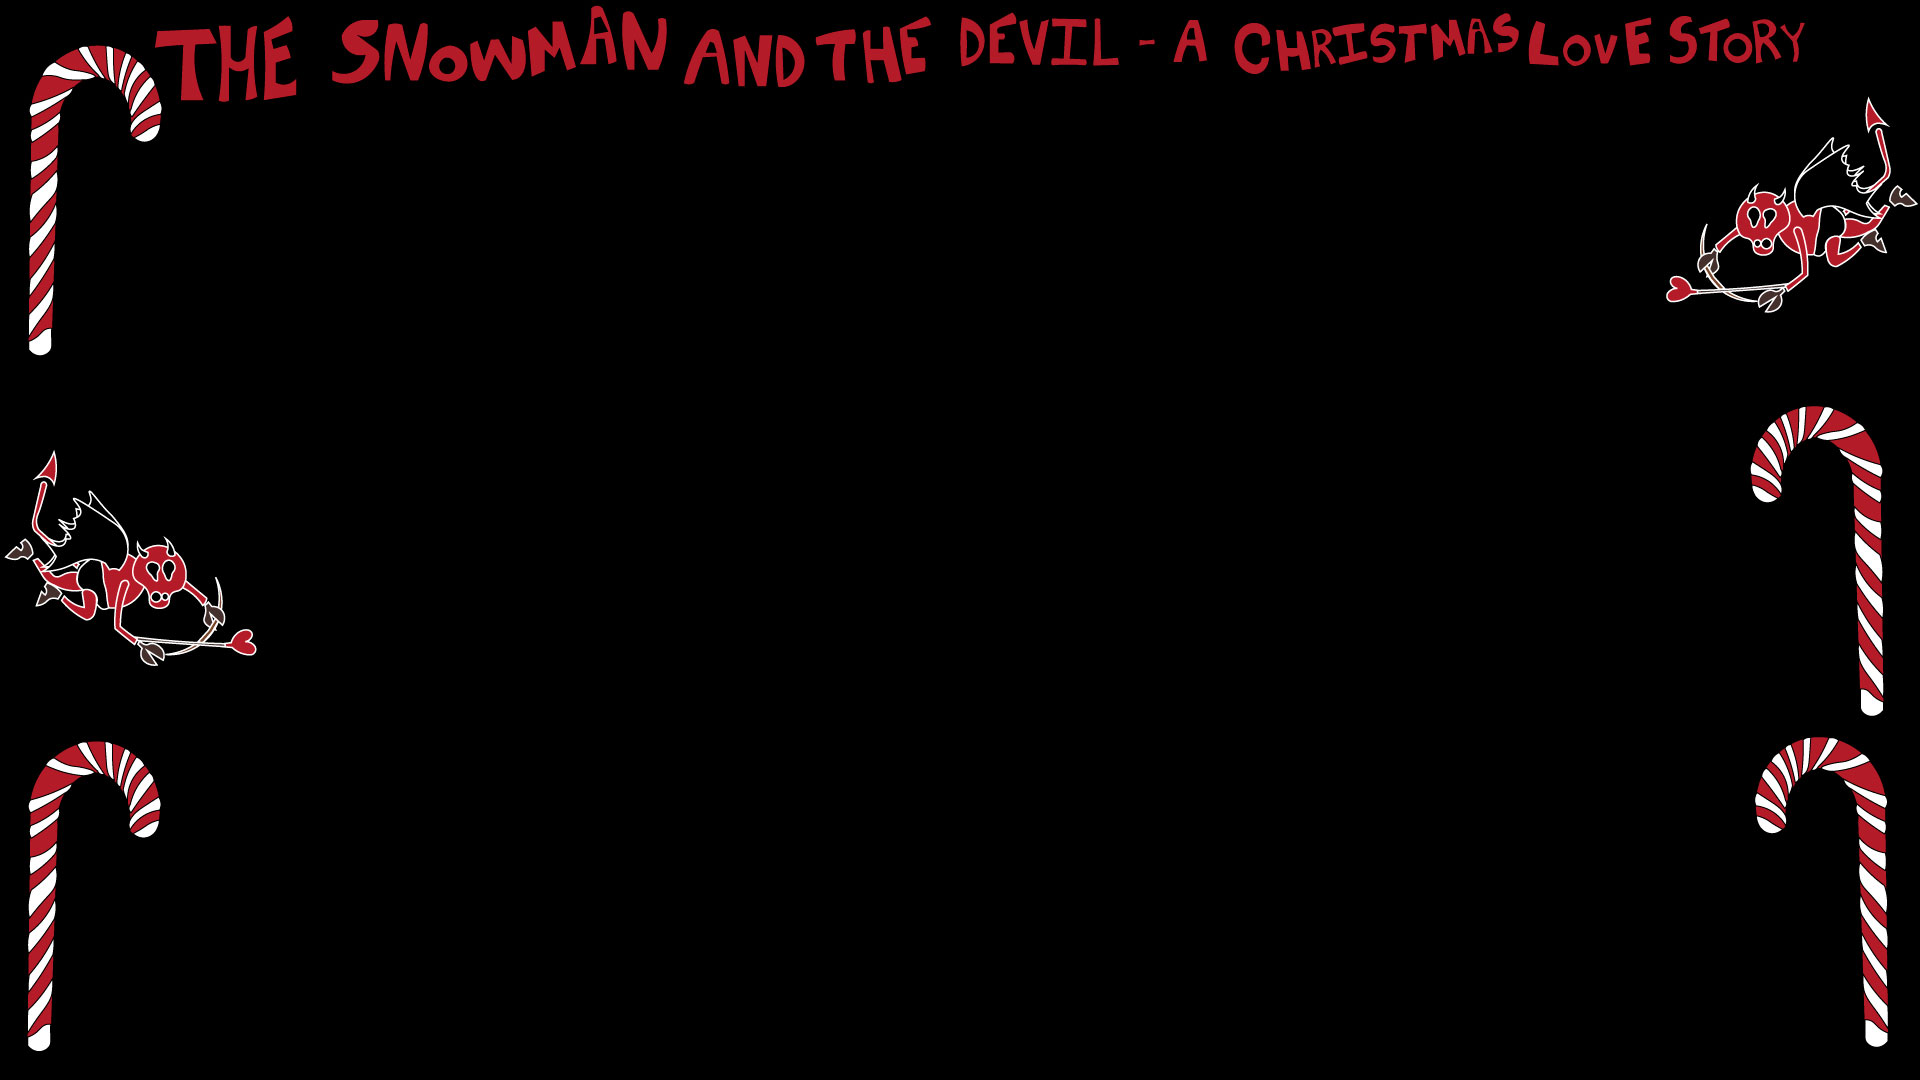 THE SNOWMAN AND THE DEVIL - A CHRISTMAS LOVE STORY